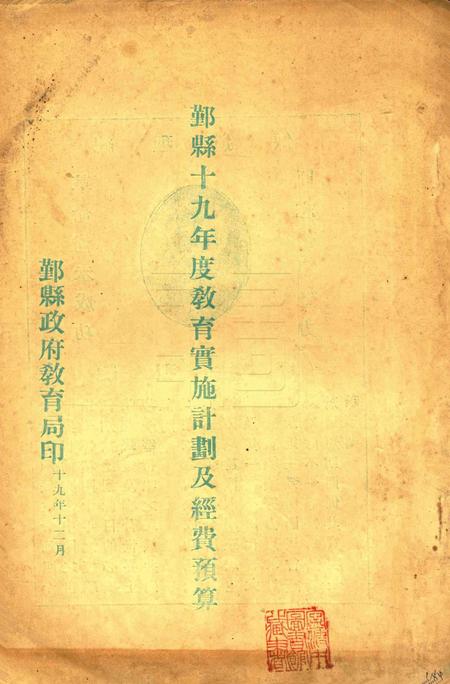 鄞縣十九年度教育實施計劃及經費預算
鄞縣政府教育局印
十九年十二月